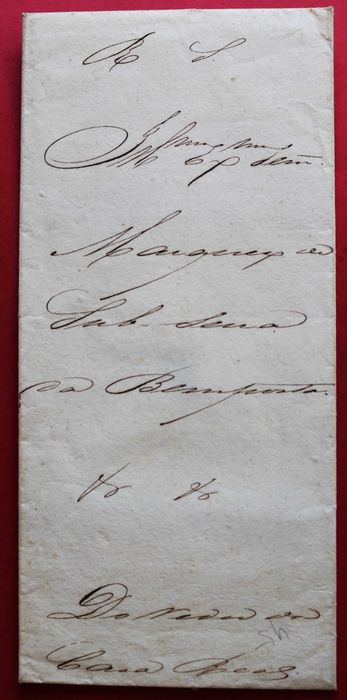 R. S.
Illmo Exmo Senr.
Marquez de
Sub-Serra
da Bemposta.
&r &r
Do Vedor da
Casa Real